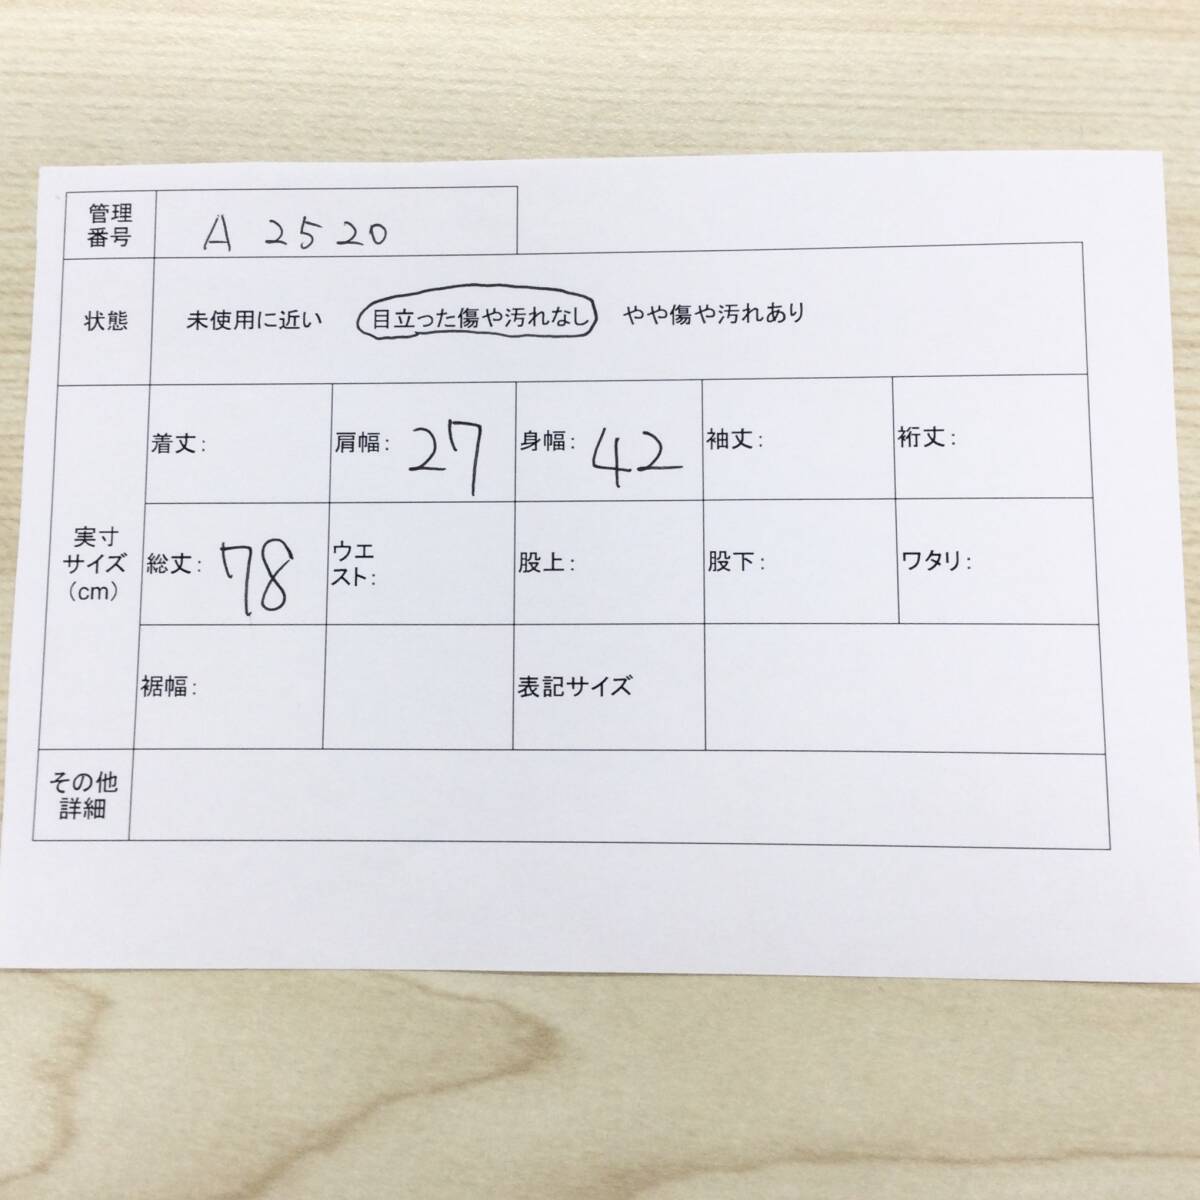 管理
番号
A 2520
状態
未使用に近い 目立った傷や汚れなし やや傷や汚れあり
実寸
サイズ
(cm)
着丈:
肩幅: 27
身幅: 42
袖丈:
裄丈:
総丈: 78
ウエ
スト:
股上:
股下:
ワタリ:
裾幅:
表記サイズ
その他
詳細